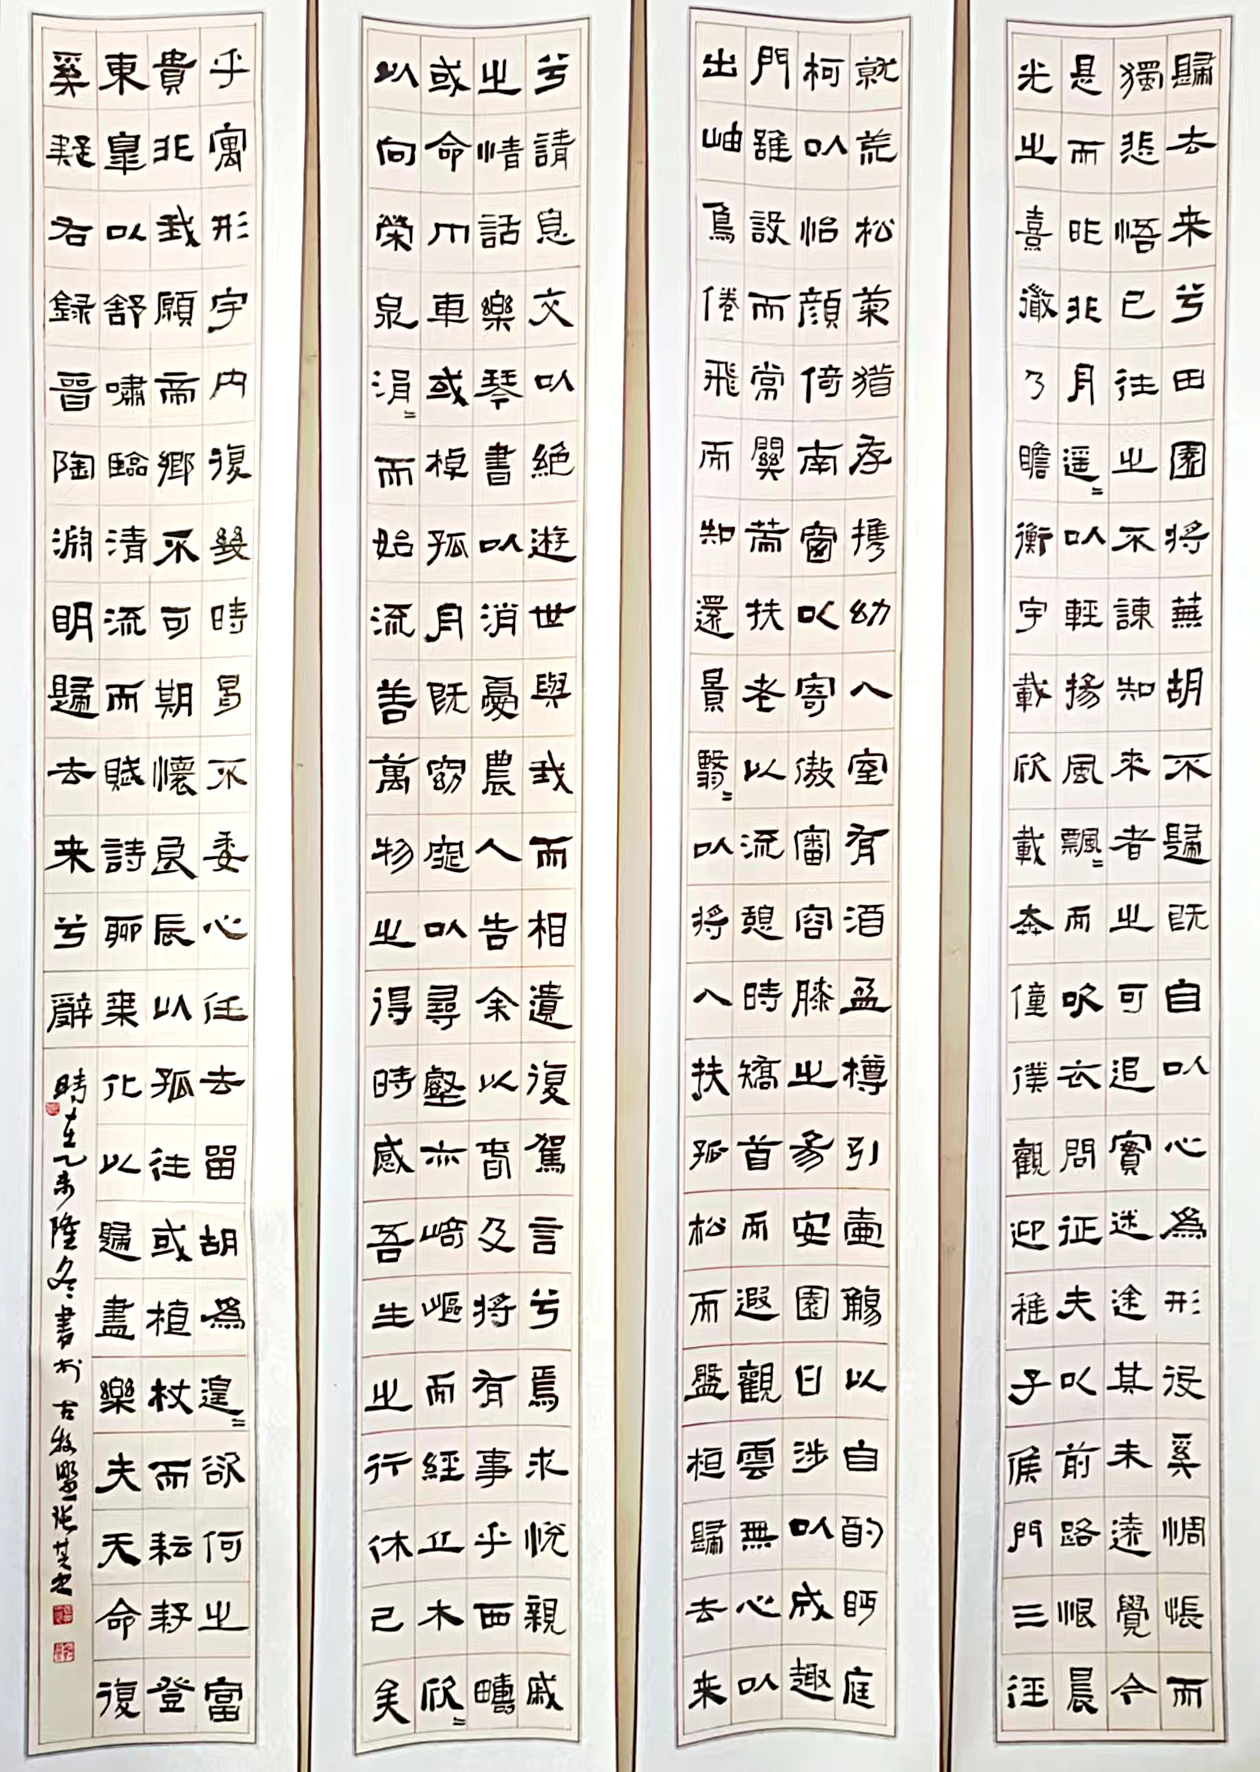 歸去来兮田園將蕪胡不歸既自以心為形役奚惆悵而
獨悲悟已往之不諫知来者之可追實迷途其未遠覺今
是而昨非舟遥〻以輕揚風飄〻而吹衣問征夫以前路恨晨
光之熹微乃瞻衡宇載欣載奔僮僕觀迎稚子候門三徑
就荒松菊猶存携幼入室有酒盈樽引壷觴以自酌眄庭
柯以怡顔倚南窗以寄傲審容膝之易安園日涉以成趣
門雖設而常關策扶老以流憩時矯首而遐觀雲無心以
出岫鳥倦飛而知還景翳〻以將入扶孤松而盤桓歸去来
兮請息交以絶遊世與我而相遺復駕言兮焉求悦親戚
之情話樂琴書以消憂農人告余以春及將有事乎西疇
或命巾車或棹孤舟既窈窕以尋壑亦崎嶇而經丘木欣〻
以向榮泉涓〻而始流善萬物之得時感吾生之行休已矣
乎寓形宇内復幾時曷不委心任去留胡為遑〻欲何之富
貴非我願帝鄉不可期懷良辰以孤往或植杖而耘耔登
東皋以舒嘯臨清流而賦詩聊乗化以歸盡樂夫天命復
奚疑右録晉陶淵明歸去来兮辭
時在乙未隆冬書於古牧野張